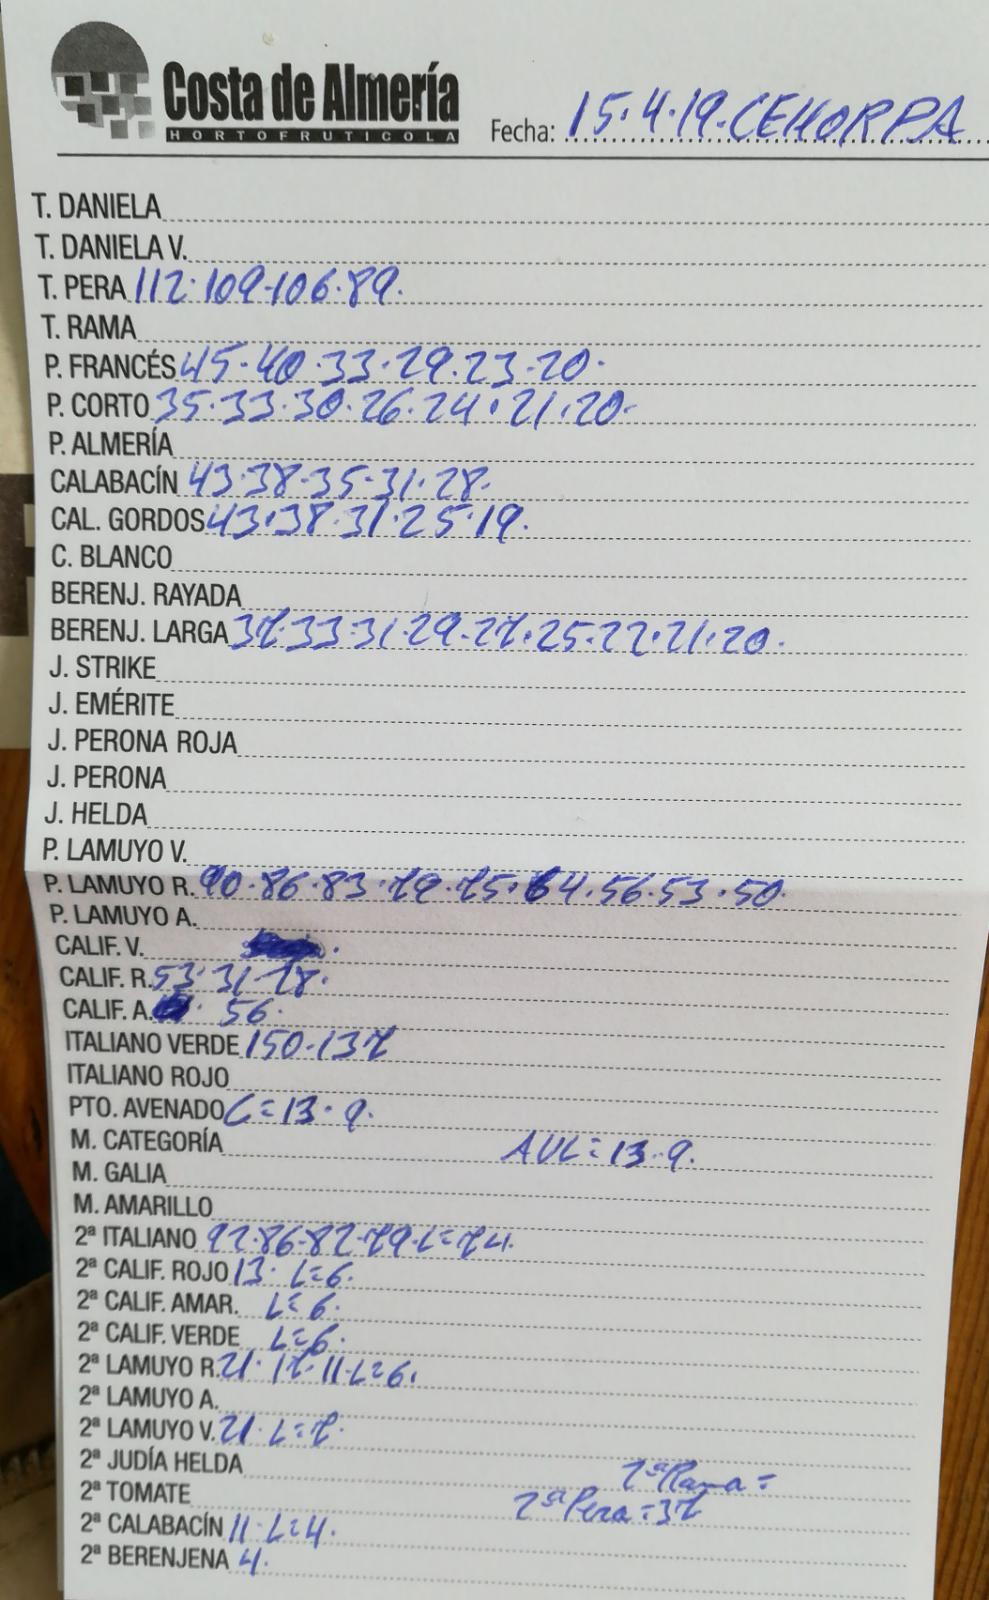 Costa de Almería
HORTOFRUTICOLA
Fecha: 15.4.19. CEHORPA
T. DANIELA
T. DANIELA V.
T. PERA 112.109.106.89.
T. RAMA
P. FRANCÉS 45.40.33.29.23.20.
P. CORTO 35.33.30.26.24.21.20.
P. ALMERÍA
CALABACÍN 43.38.35.31.28.
CAL. GORDOS 43.38.31.25.19.
C. BLANCO
BERENJ. RAYADA
BERENJ. LARGA 37.33.31.29.27.25.22.21.20.
J. STRIKE
J. EMÉRITE
J. PERONA ROJA
J. PERONA
J. HELDA
P. LAMUYO V.
P. LAMUYO R. 90.86.83.79.75.64.56.53.50.
P. LAMUYO A.
CALIF. V.
CALIF. R. 53.31.28.
CALIF. A. 56.
ITALIANO VERDE 150.137
ITALIANO ROJO
PTO. AVENADO C=13.9.
M. CATEGORÍA AVL=13.9.
M. GALIA
M. AMARILLO
2ª ITALIANO 92.86.82.79.L=74.
2ª CALIF. ROJO 13. L=6.
2ª CALIF. AMAR. L=6.
2ª CALIF. VERDE L=6.
2ª LAMUYO R. 21.17.11.L=6.
2ª LAMUYO A.
2ª LAMUYO V. 21.L=7.
2ª JUDÍA HELDA 2ªRama=
2ª TOMATE 2ªPera=37
2ª CALABACÍN 11.L=4.
2ª BERENJENA 4.